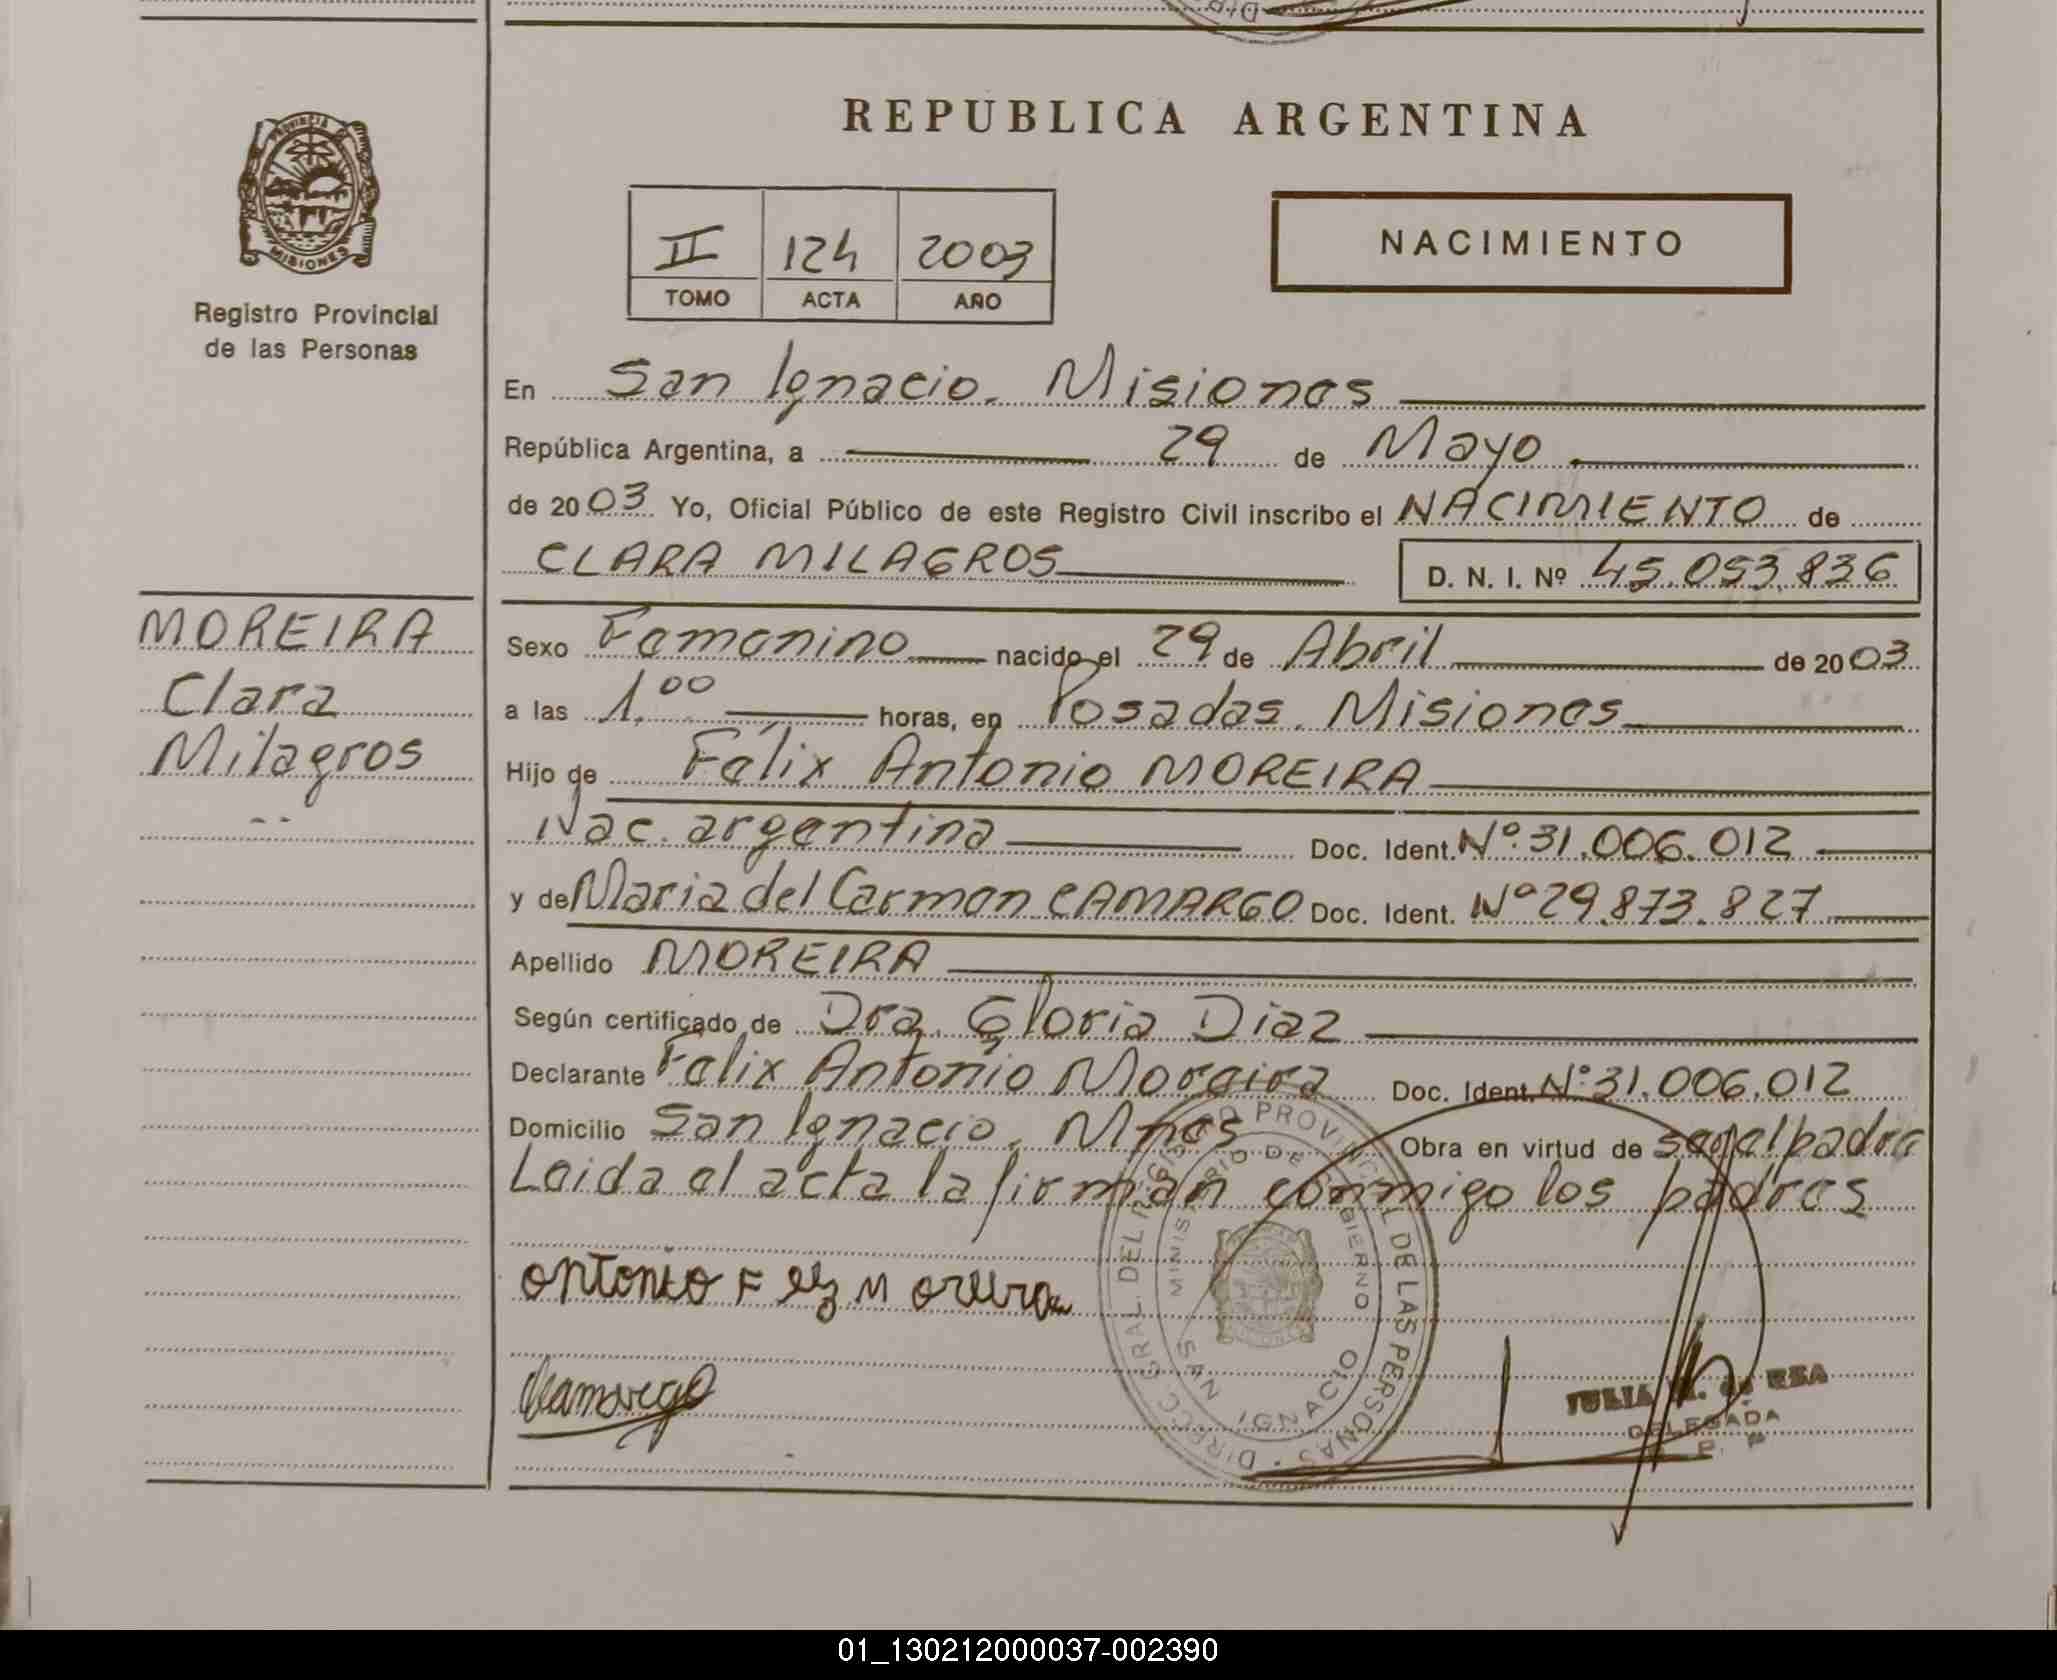 REPUBLICA ARGENTINA
PROVINCIA
MISIONES
Registro Provincial
de las Personas
II 124 2003
TOMO ACTA AÑO
NACIMIENTO
En San Ignacio. Misiones
República Argentina, a 29 de Mayo
de 2003 Yo, Oficial Público de este Registro Civil inscribo el NACIMIENTO de
CLARA MILAGROS D. N. I. Nº 45.053.836
MOREIRA
Clara
Milagros
Sexo Femenino nacido el 29 de Abril de 2003
a las 1.00 horas, en Posadas. Misiones
Hijo de Félix Antonio MOREIRA
Nac. argentina Doc. Ident. Nº 31.006.012
y de Maria del Carmen CAMARGO Doc. Ident. Nº 29.873.827
Apellido MOREIRA
Según certificado de Dra. Gloria Diaz
Declarante Felix Antonio Moreira Doc. Ident. Nº 31.006.012
Domicilio San Ignacio. Mnes Obra en virtud de ser el padre
Leida el acta la firman conmigo los padres
DIRECC. GRAL. DEL REGISTRO PROVINCIAL DE LAS PERSONAS
MINISTERIO DE GOBIERNO
SAN IGNACIO
JULIA
DELEGADA
01_130212000037-002390